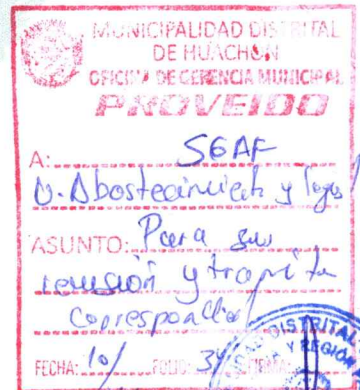 MUNICIPALIDAD DISTRITAL
DE HUACHON
OFICINA DE GERENCIA MUNICIPAL
PROVEIDO
A: SGAF
U. Abastecimiento y
ASUNTO: Para su
revisión y tramite
Correspondiente
FECHA: 10/ FOLIO: 34
DISTRITAL
Y REGIÓN